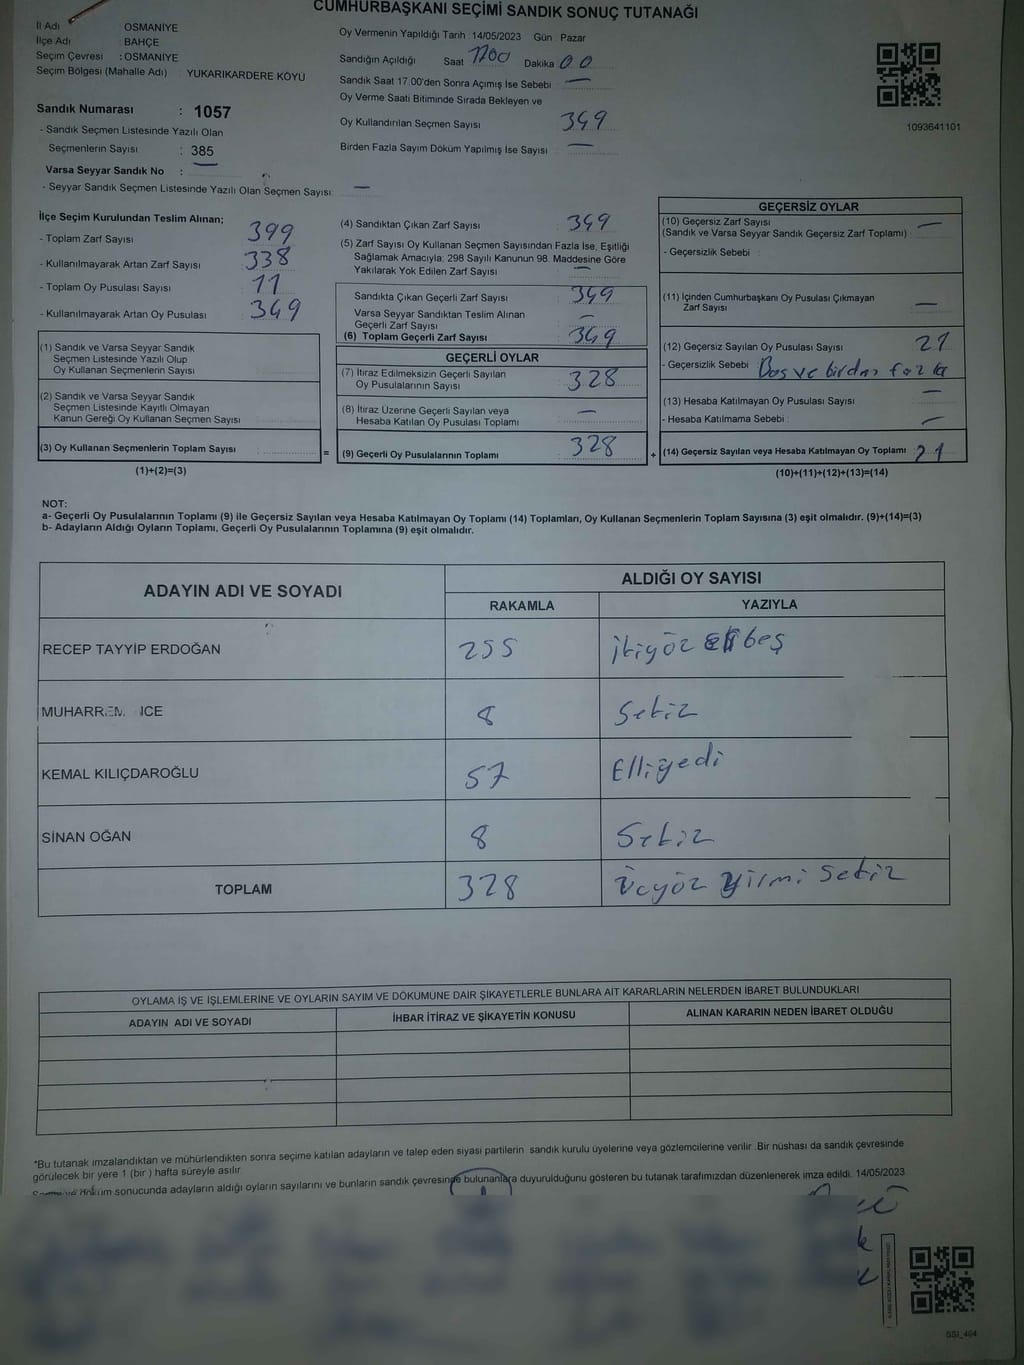 CUMHURBAŞKANI SEÇİMİ SANDIK SONUÇ TUTANAĞI
İl Adı OSMANİYE
İlçe Adı : BAHÇE
Seçim Çevresi : OSMANİYE
Seçim Bölgesi (Mahalle Adı) : YUKARIKARDERE KÖYÜ
Sandık Numarası : 1057
- Sandık Seçmen Listesinde Yazılı Olan
Seçmenlerin Sayısı : 385
Varsa Seyyar Sandık No : —
- Seyyar Sandık Seçmen Listesinde Yazılı Olan Seçmen Sayısı: —
Oy Vermenin Yapıldığı Tarih : 14/05/2023 Gün : Pazar
Sandığın Açıldığı Saat 1700 Dakika 00
Sandık Saat 17.00'den Sonra Açımış İse Sebebi —
Oy Verme Saati Bitiminde Sırada Bekleyen ve
Oy Kullandırılan Seçmen Sayısı 349
Birden Fazla Sayım Döküm Yapılmış İse Sayısı —
1093641101
İlçe Seçim Kurulundan Teslim Alınan;
- Toplam Zarf Sayısı 399
- Kullanılmayarak Artan Zarf Sayısı 338
- Toplam Oy Pusulası Sayısı 11
- Kullanılmayarak Artan Oy Pusulası 349
(1) Sandık ve Varsa Seyyar Sandık
Seçmen Listesinde Yazılı Olup
Oy Kullanan Seçmenlerin Sayısı
(2) Sandık ve Varsa Seyyar Sandık
Seçmen Listesinde Kayıtlı Olmayan
Kanun Gereği Oy Kullanan Seçmen Sayısı
(3) Oy Kullanan Seçmenlerin Toplam Sayısı =
(1)+(2)=(3)
(4) Sandıktan Çıkan Zarf Sayısı 349
(5) Zarf Sayısı Oy Kullanan Seçmen Sayısından Fazla İse, Eşitliği
Sağlamak Amacıyla; 298 Sayılı Kanunun 98. Maddesine Göre
Yakılarak Yok Edilen Zarf Sayısı —
Sandıkta Çıkan Geçerli Zarf Sayısı 349
Varsa Seyyar Sandıktan Teslim Alınan
Geçerli Zarf Sayısı —
(6) Toplam Geçerli Zarf Sayısı 349
GEÇERLİ OYLAR
(7) İtiraz Edilmeksizin Geçerli Sayılan
Oy Pusulalarının Sayısı 328
(8) İtiraz Üzerine Geçerli Sayılan veya
Hesaba Katılan Oy Pusulası Toplamı —
(9) Geçerli Oy Pusulalarının Toplamı 328 +
GEÇERSİZ OYLAR
(10) Geçersiz Zarf Sayısı
(Sandık ve Varsa Seyyar Sandık Geçersiz Zarf Toplamı) : —
- Geçersizlik Sebebi :
(11) İçinden Cumhurbaşkanı Oy Pusulası Çıkmayan
Zarf Sayısı —
(12) Geçersiz Sayılan Oy Pusulası Sayısı 21
- Geçersizlik Sebebi Boş ve birden fazla
(13) Hesaba Katılmayan Oy Pusulası Sayısı —
- Hesaba Katılmama Sebebi : —
(14) Geçersiz Sayılan veya Hesaba Katılmayan Oy Toplamı 21
(10)+(11)+(12)+(13)=(14)
NOT:
a- Geçerli Oy Pusulalarının Toplamı (9) ile Geçersiz Sayılan veya Hesaba Katılmayan Oy Toplamı (14) Toplamları, Oy Kullanan Seçmenlerin Toplam Sayısına (3) eşit olmalıdır. (9)+(14)=(3)
b- Adayların Aldığı Oyların Toplamı, Geçerli Oy Pusulalarının Toplamına (9) eşit olmalıdır.
ADAYIN ADI VE SOYADI ALDIĞI OY SAYISI
RAKAMLA YAZIYLA
RECEP TAYYİP ERDOĞAN 255 ikiyöz elli beş
MUHARREM İNCE 8 Sekiz
KEMAL KILIÇDAROĞLU 57 Elliyedi
SİNAN OĞAN 8 Sekiz
TOPLAM 328 üçyöz yirmi sekiz
OYLAMA İŞ VE İŞLEMLERİNE VE OYLARIN SAYIM VE DÖKÜMÜNE DAİR ŞİKAYETLERLE BUNLARA AİT KARARLARIN NELERDEN İBARET BULUNDUKLARI
ADAYIN ADI VE SOYADI İHBAR İTİRAZ VE ŞİKAYETİN KONUSU ALINAN KARARIN NEDEN İBARET OLDUĞU
*Bu tutanak imzalandıktan ve mühürlendikten sonra seçime katılan adayların ve talep eden siyasi partilerin sandık kurulu üyelerine veya gözlemcilerine verilir. Bir nüshası da sandık çevresinde
görülecek bir yere 1 (bir ) hafta süreyle asılır.
Sayım ve döküm sonucunda adayların aldığı oyların sayılarını ve bunların sandık çevresinde bulunanlara duyurulduğunu gösteren bu tutanak tarafımızdan düzenlenerek imza edildi. 14/05/2023
SSI_464